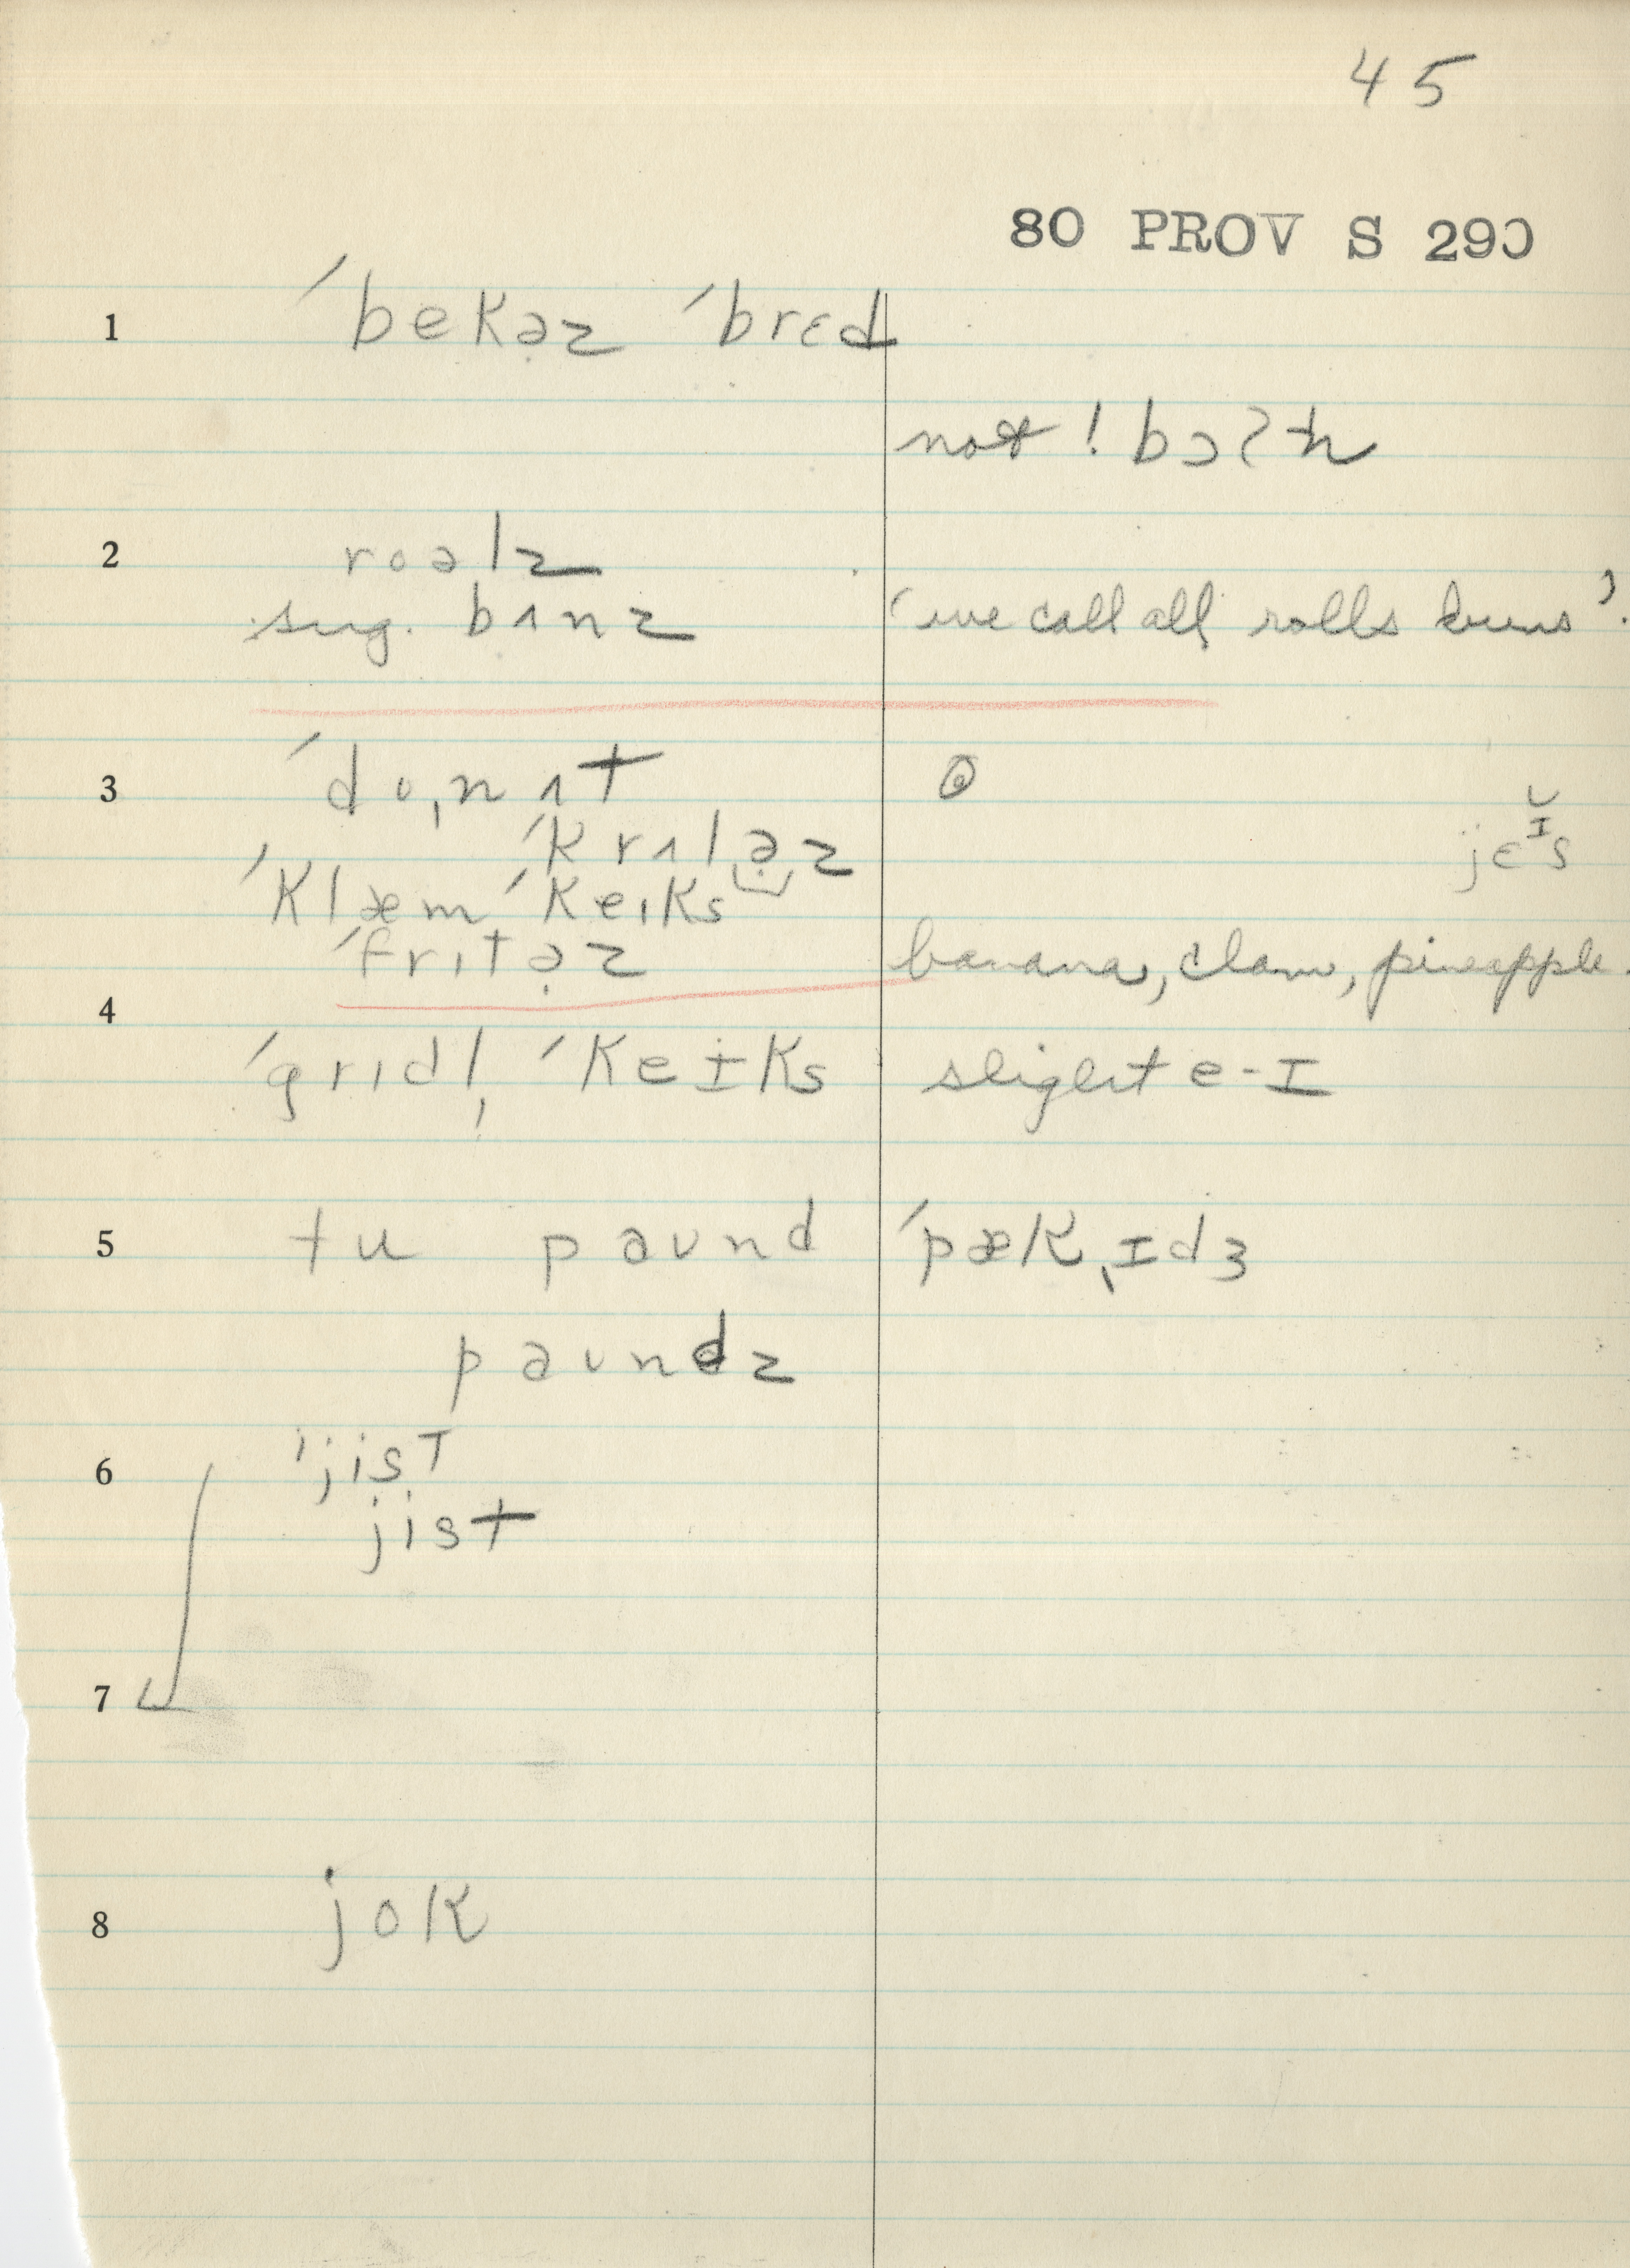 45
80 PROV S 290
1 ˈbekə̣z ˈbrɛd
not ! bɔʔn
2 roəlz
sug. bʌnz ‘we call all rolls buns’.
3 ˈdoˌnʌt
ˈkrʌlə̣z jɛɪ̆s
ˈklæm ˈkeɪks
ˈfrɪtə̣z banana, clam, pineapple.
4
ˈgrɪdl̩ ˈkeɪks slight e-ɪ
5 tu paʊnd ˈpækˌɪdʒ
paʊndz
6 ˈjist
jist
7
8 jok